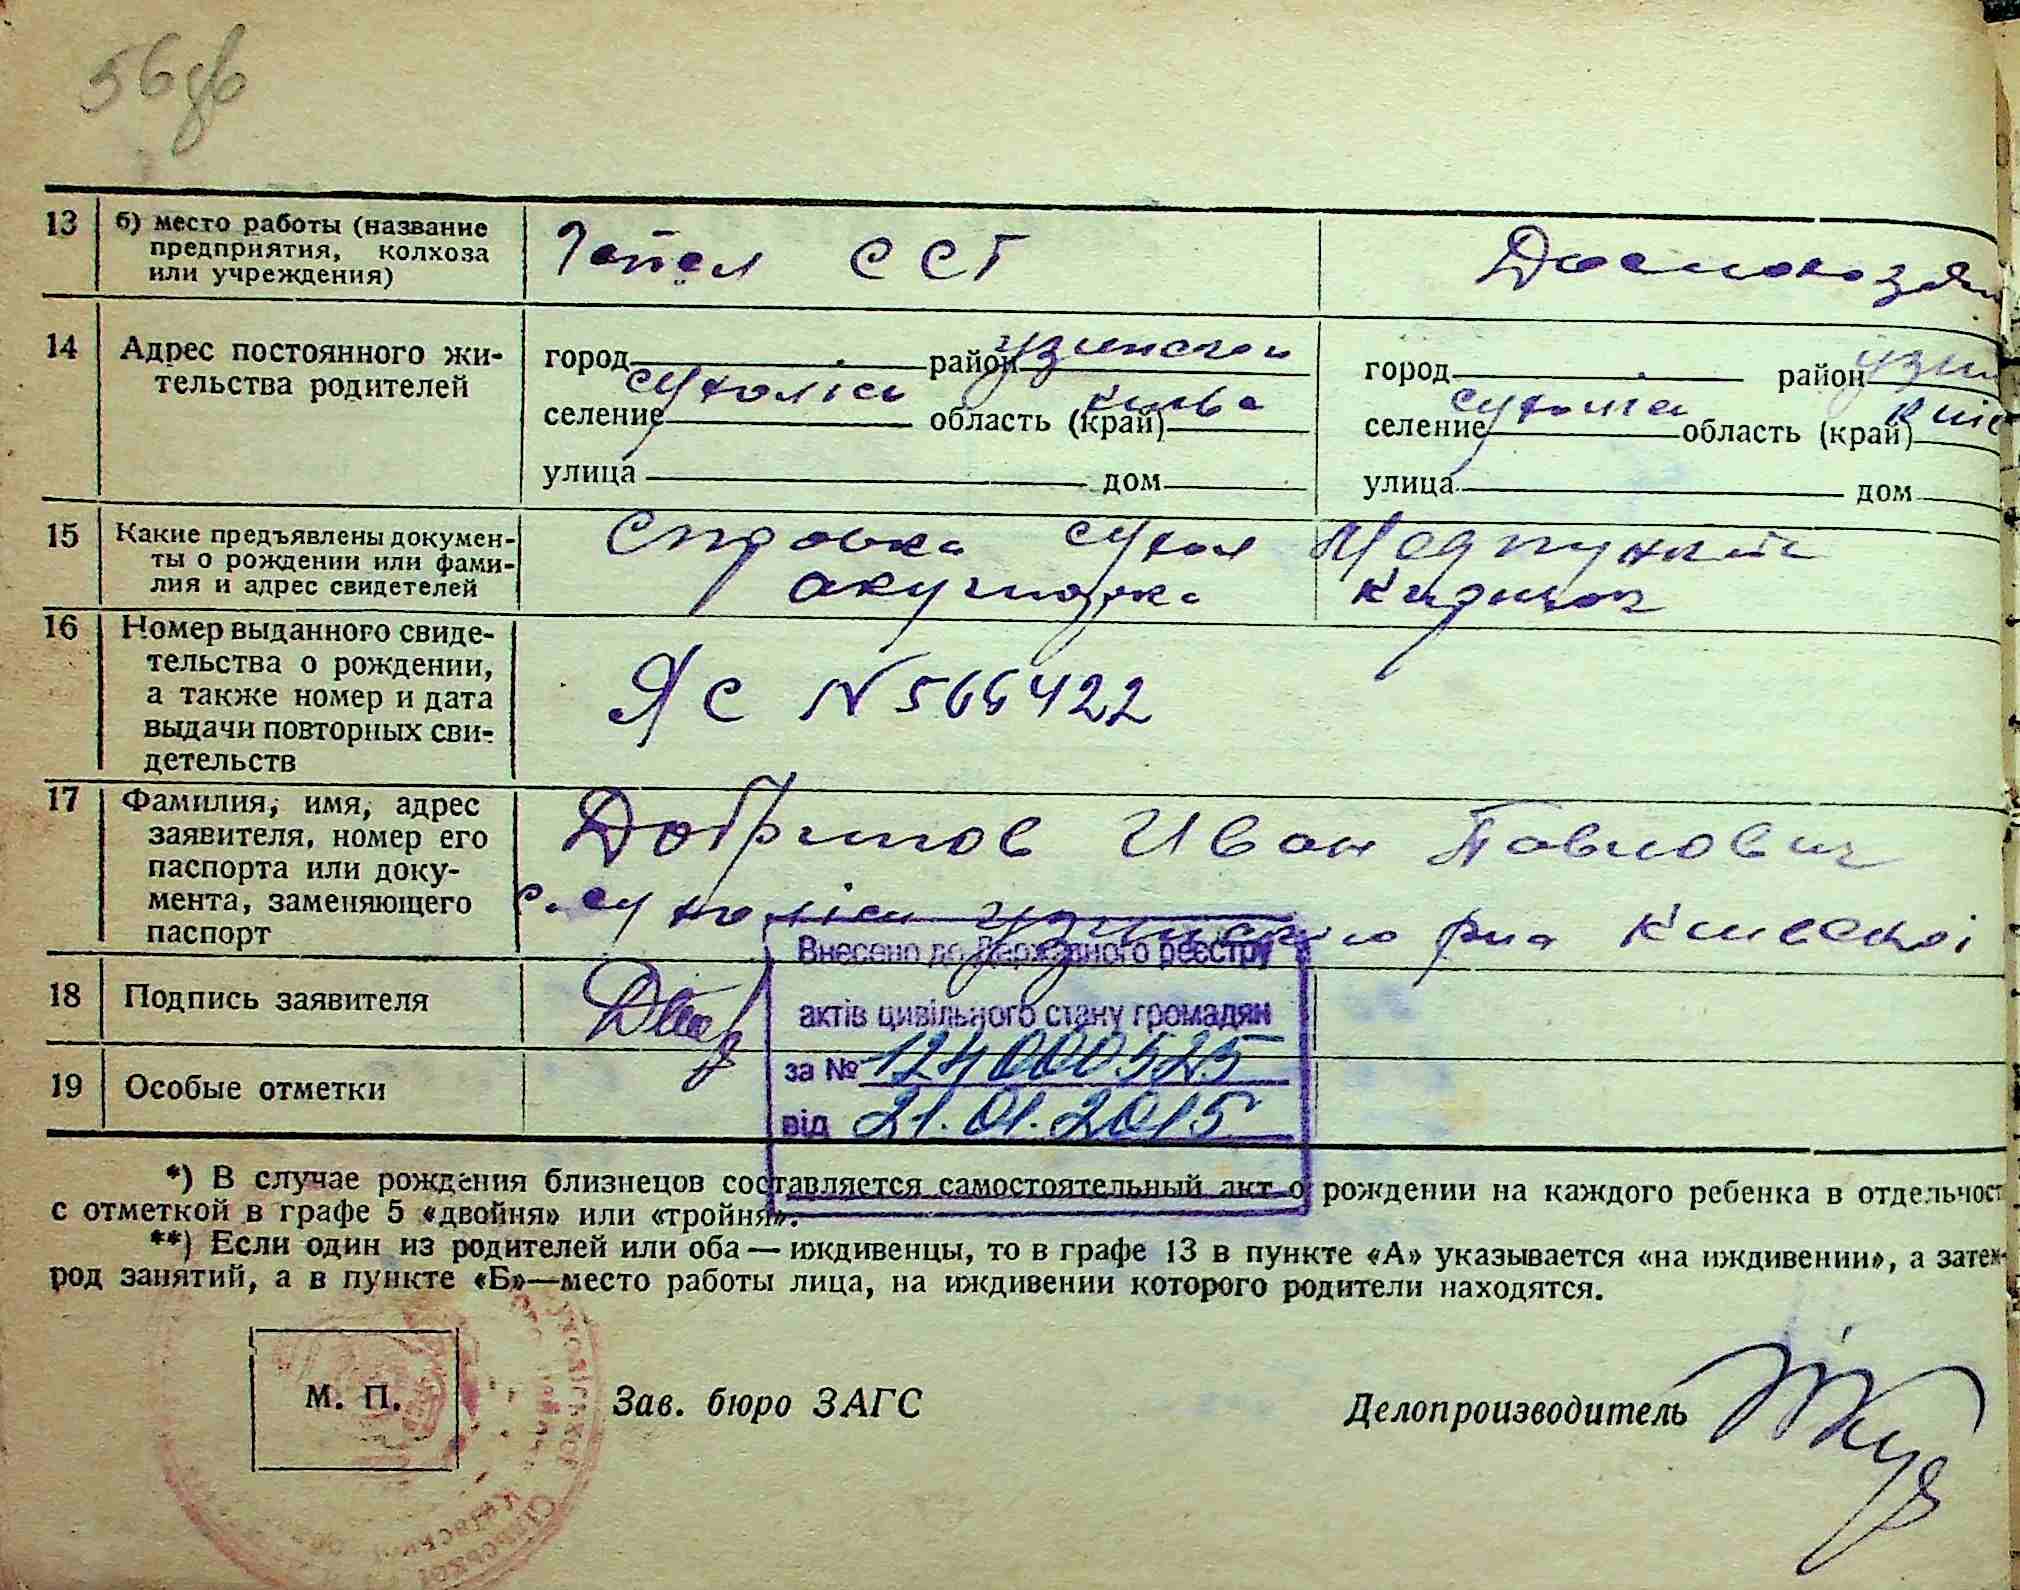 56
13 б) место работы (название
предприятия, колхоза
или учреждения)
ССТ
14 Адрес постоянного жи-
тельства родителей
город район узинского
селение сухоліси область (край) Київс
улица дом
город район узин
селение сухоліси область (край) Київ
улица дом
15 Какие предъявлены докумен-
ты о рождении или фами-
лия и адрес свидетелей
Справка сухол Медпункта
акушерка
16 Номер выданного свиде-
тельства о рождении,
а также номер и дата
выдачи повторных сви-
детельств
ЯС N 566422
17 Фамилия, имя, адрес
заявителя, номер его
паспорта или доку-
мента, заменяющего
паспорт
Иван Павлович
с. сухоліси узинского р-на Київської
18 Подпись заявителя
19 Особые отметки
Внесено до Державного реєстру
актів цивільного стану громадян
за № 124000525
від 21.01.2015
*) В случае рождения близнецов составляется самостоятельный акт о рождении на каждого ребенка в отдельност
с отметкой в графе 5 «двойня» или «тройня».
**) Если один из родителей или оба — иждивенцы, то в графе 13 в пункте «А» указывается «на иждивении», а затем
род занятий, а в пункте «Б»—место работы лица, на иждивении которого родители находятся.
М. П.
Зав. бюро ЗАГС
Делопроизводитель